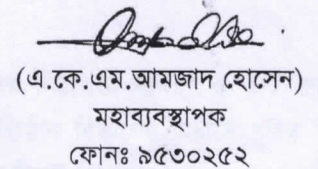 (এ.কে.এম.আমজাদ হোসেন)
মহাব্যবস্থাপক
ফোনঃ ৯৫৩০২৫২